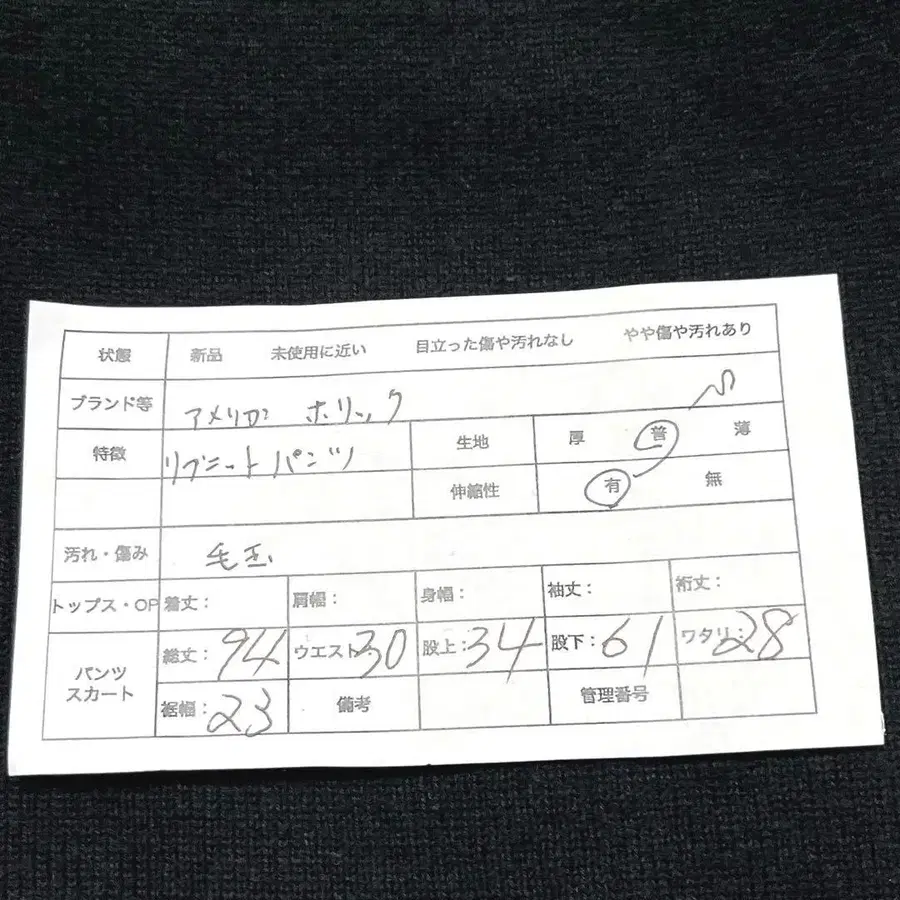 状態 新品 未使用に近い 目立った傷や汚れなし やや傷や汚れあり
ブランド等 アメリカン ホリック
特徴 リブニットパンツ 生地 厚 普 薄
伸縮性 有 無
汚れ・傷み 毛玉
トップス・OP 着丈: 肩幅: 身幅: 袖丈: 裄丈:
パンツ スカート 総丈:94 ウエスト30 股上:34 股下:61 ワタリ:28
裾幅:23 備考 管理番号